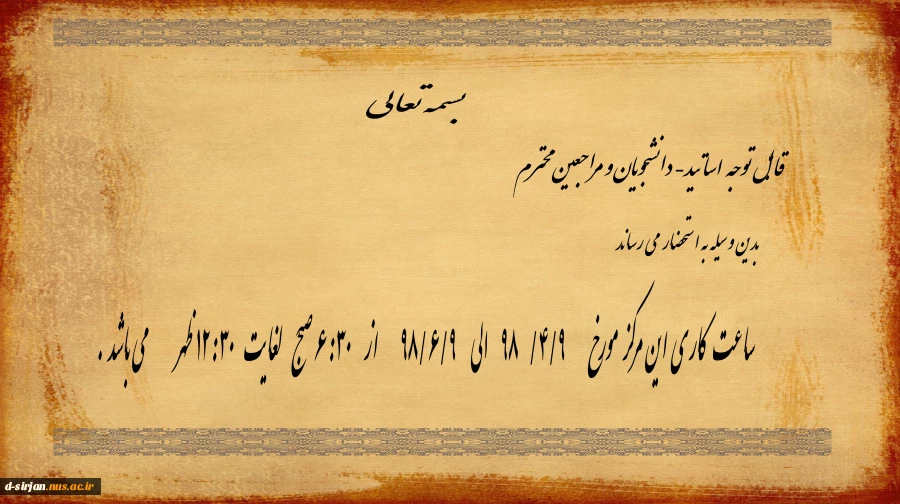 بسمه تعالی
قابل توجه اساتید- دانشجویان و مراجعین محترم
بدین وسیله به استحضار می رساند
ساعت کاری این مرکز مورخ ۹۸ /۴/۹ الی ۹۸/۶/۹ از ۶:۳۰ صبح لغایت ۱۲:۳۰ ظهر می باشد .
d-sirjan.nus.ac.ir